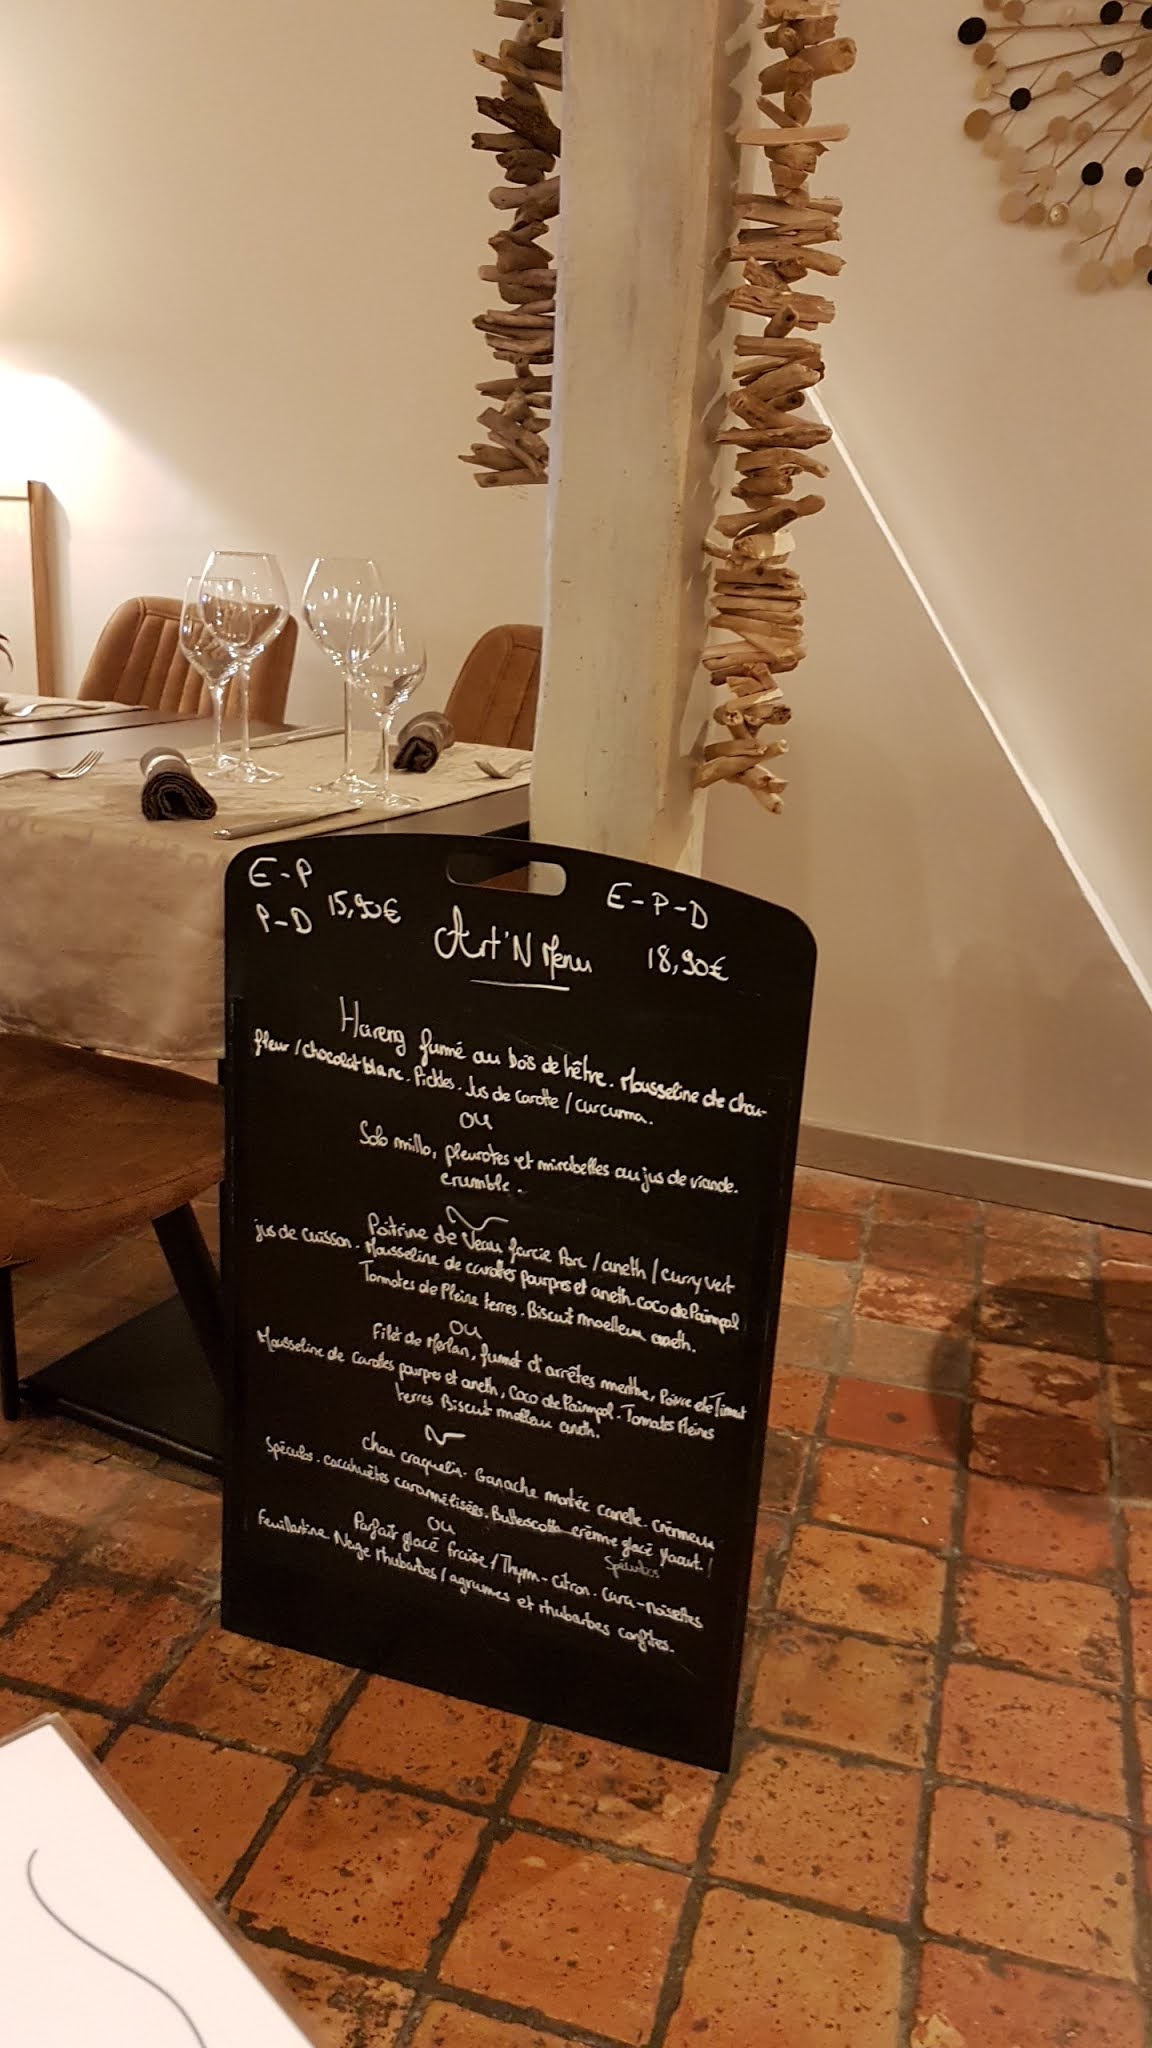 E-P
P-D
15,90€
E-P-D
18,90€
Art'N Menu
Hareng fumé au bois de hêtre. Mousseline de chou-
fleur / chocolat blanc. Pickles. Jus de carotte / curcuma.
OU
Solo millo, pleurotes et mirabelles au jus de viande.
crumble.
Poitrine de Veau farcie Porc / aneth / curry vert
jus de cuisson. Mousseline de carottes pourpres et aneth. coco de Paimpol
Tomates de Pleine terres. Biscuit moelleux aneth.
OU
Filet de Merlan, fumet d'arrêtes menthe, Poivre de Timut
Mousseline de carottes pourpres et aneth, Coco de Paimpol. Tomates Pleines
terres Biscuit molleux aneth.
Chou craquelin. Ganache montée canelle. Crémeux
Spéculos. cacahuètes caramélisées. Butterscotch crème glacé Yaourt /
Spéculos
OU
Parfait glacé fraise / Thym-citron. Cara-noisettes
feuillantine Nage rhubarbes / agrumes et rhubarbes confites.